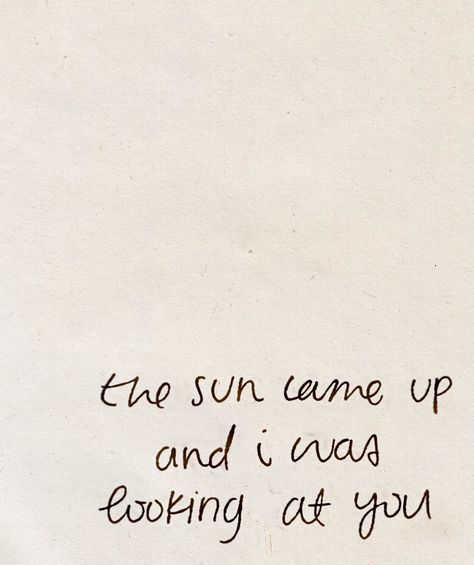 the sun came up
and i was
looking at you